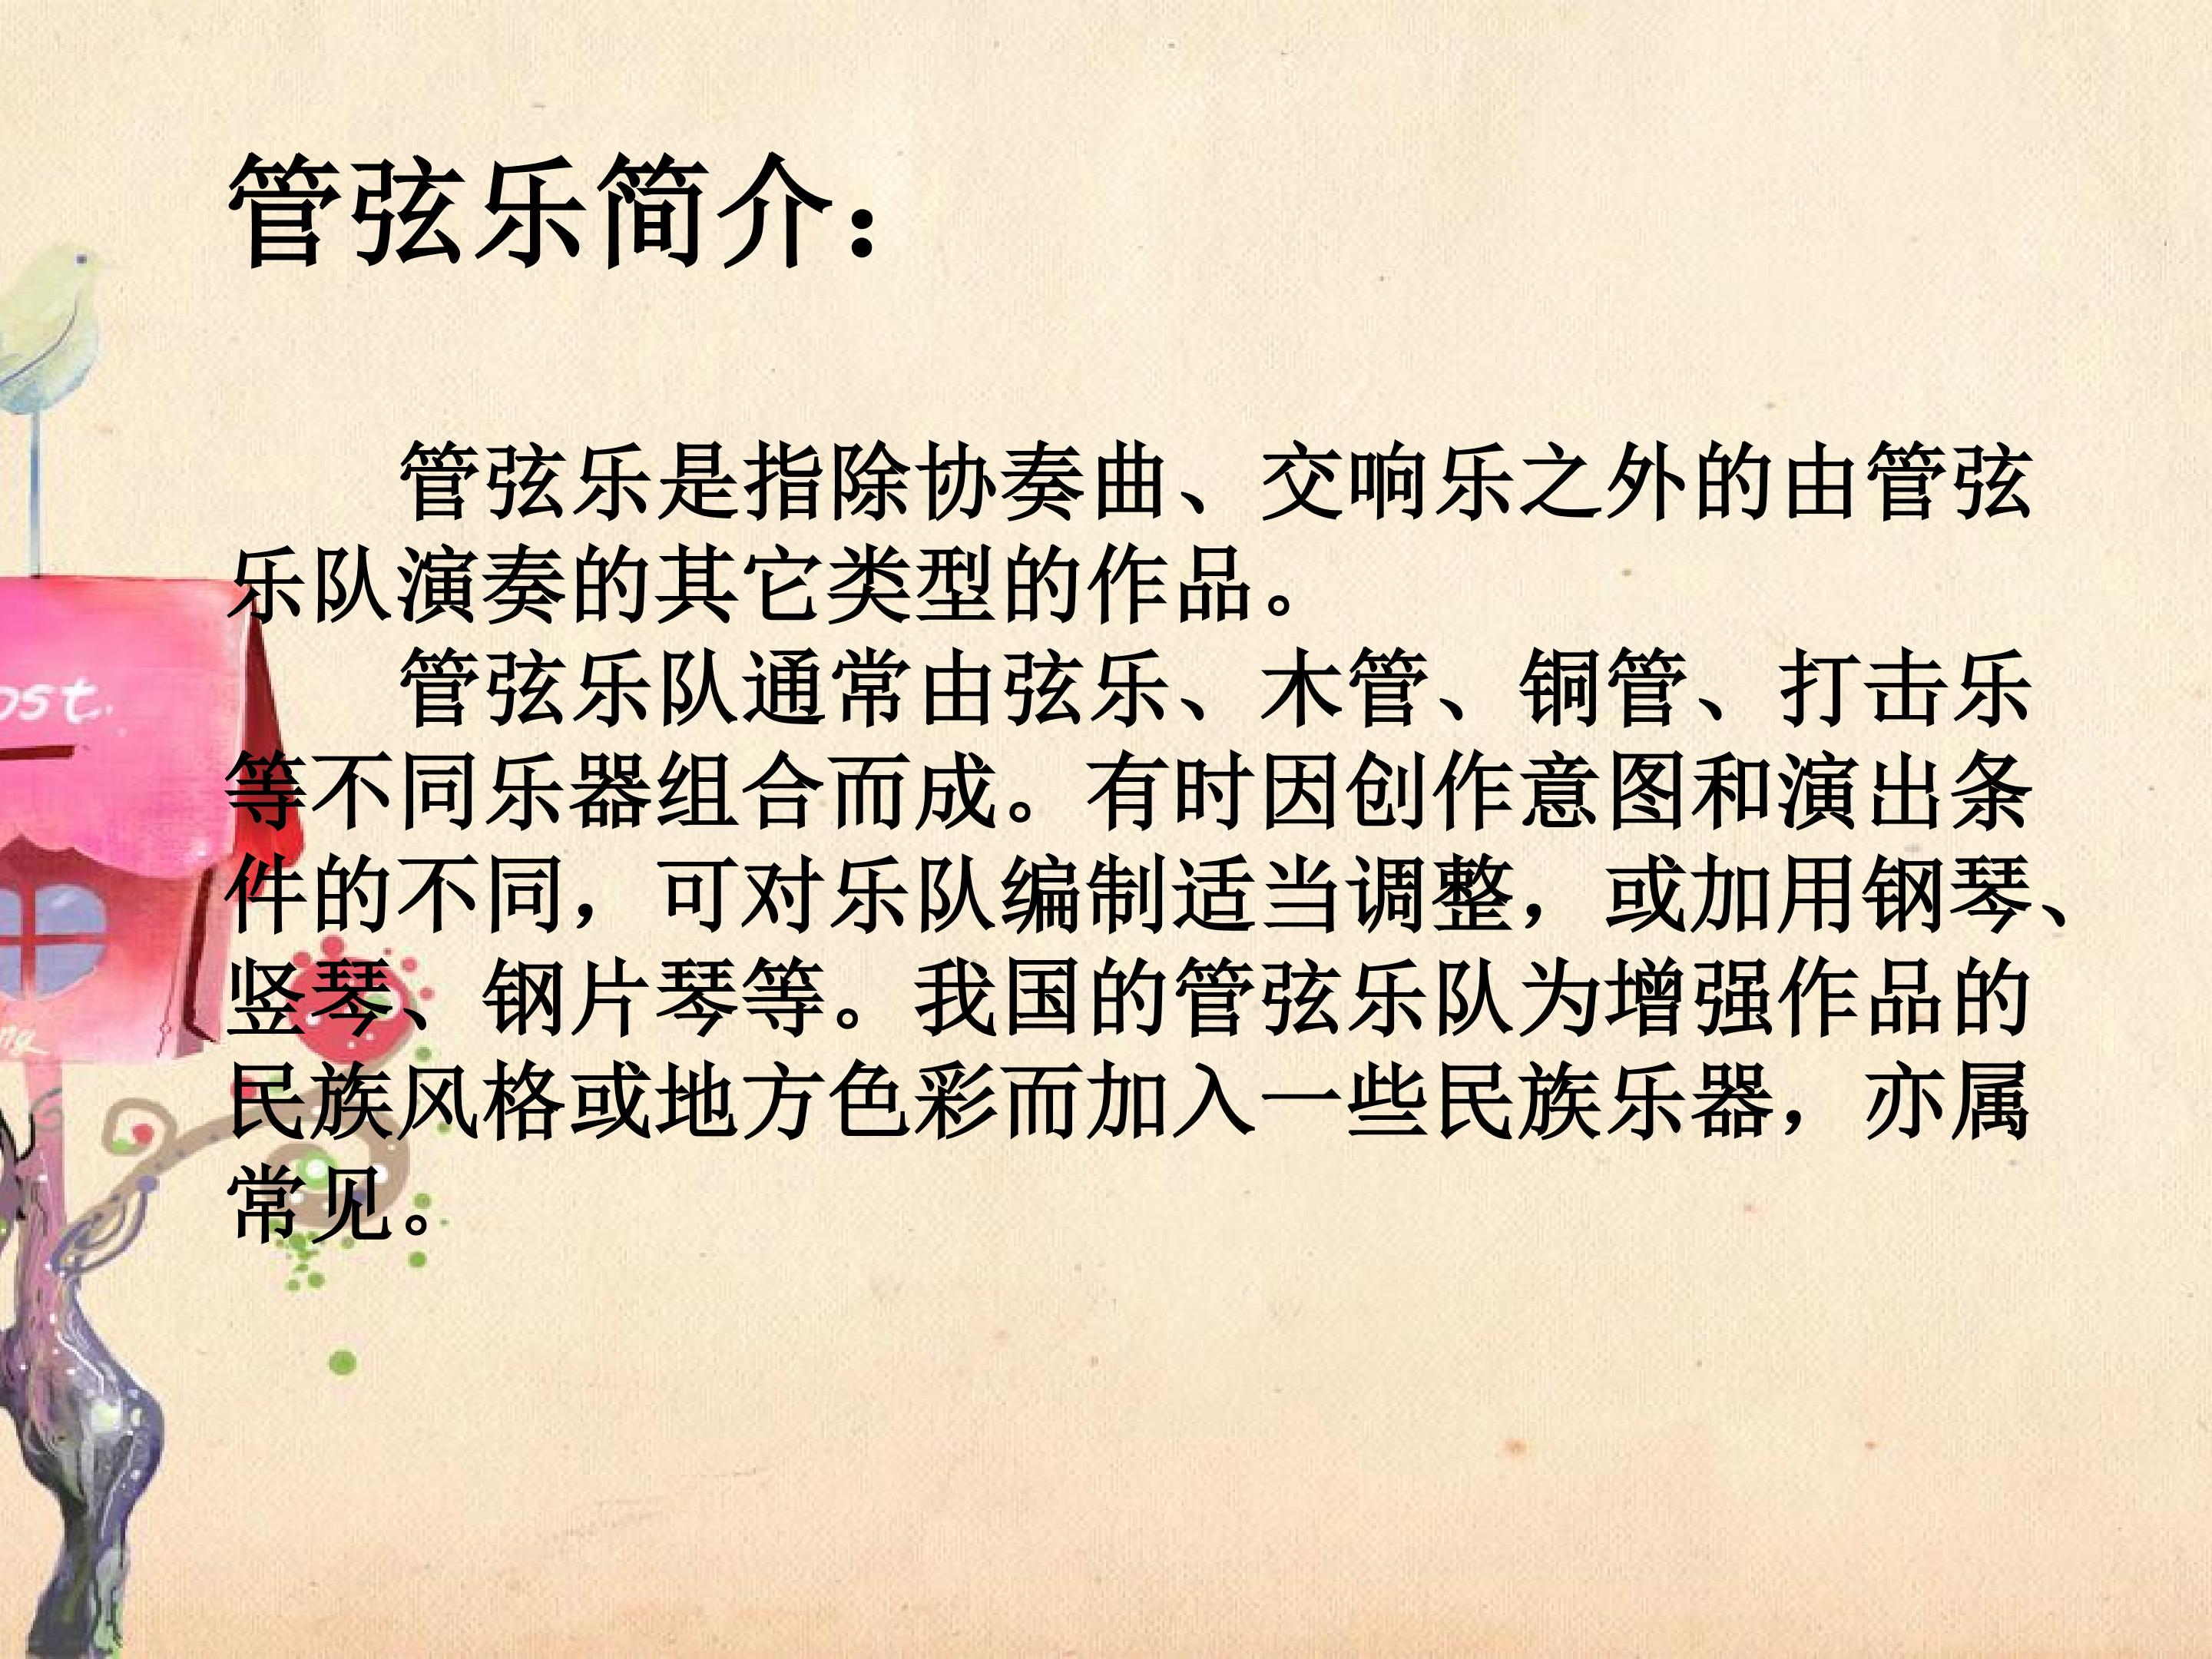 管弦乐简介：
管弦乐是指除协奏曲、交响乐之外的由管弦
乐队演奏的其它类型的作品。
管弦乐队通常由弦乐、木管、铜管、打击乐
等不同乐器组合而成。有时因创作意图和演出条
件的不同，可对乐队编制适当调整，或加用钢琴、
竖琴、钢片琴等。我国的管弦乐队为增强作品的
民族风格或地方色彩而加入一些民族乐器，亦属
常见。
ost.